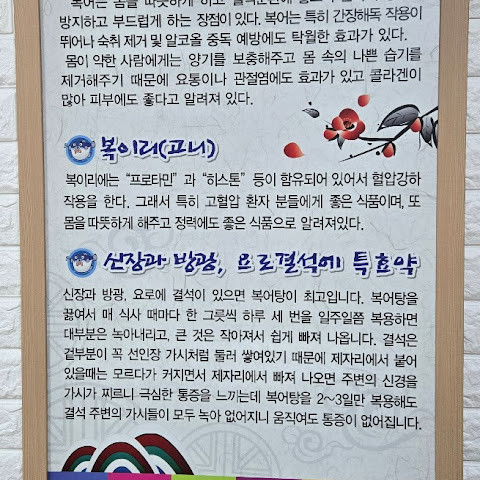 방지하고 부드럽게 하는 장점이 있다. 복어는 특히 간장해독 작용이
뛰어나 숙취 제거 및 알코올 중독 예방에도 탁월한 효과가 있다.
몸이 약한 사람에게는 양기를 보충해주고 몸 속의 나쁜 습기를
제거해주기 때문에 요통이나 관절염에도 효과가 있고 콜라겐이
많아 피부에도 좋다고 알려져 있다.
복이리(고니)
복이리에는 "프로타민" 과 "히스톤" 등이 함유되어 있어서 혈압강하
작용을 한다. 그래서 특히 고혈압 환자 분들에게 좋은 식품이며, 또
몸을 따뜻하게 해주고 정력에도 좋은 식품으로 알려져있다.
신장과 방광, 요로결석에 특효약
신장과 방광, 요로에 결석이 있으면 복어탕이 최고입니다. 복어탕을
끓여서 매 식사 때마다 한 그릇씩 하루 세 번을 일주일쯤 복용하면
대부분은 녹아내리고, 큰 것은 작아져서 쉽게 빠져 나옵니다. 결석은
겉부분이 꼭 선인장 가시처럼 둘러 쌓여있기 때문에 제자리에서 붙어
있을때는 모르다가 커지면서 제자리에서 빠져 나오면 주변의 신경을
가시가 찌르니 극심한 통증을 느끼는데 복어탕을 2~3일만 복용해도
결석 주변의 가시들이 모두 녹아 없어지니 움직여도 통증이 없어집니다.